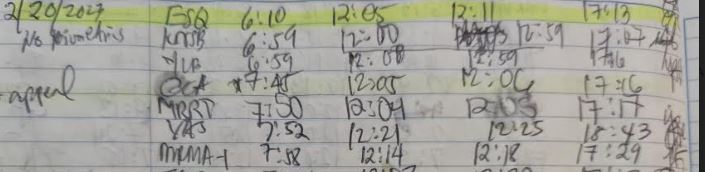 2/20/2027 ESQ 6:10 12:05 12:11 17:13
No biometrics KMSB 6:59 12:00 12:59 17:07
MLB 6:59 12:00 12:59 17:16
appeal OCA *7:45 12:05 12:06 17:16
MBRT 7:50 12:04 12:05 17:17
VAS 7:52 12:21 12:25 18:43
MRMA-1 7:58 12:14 12:18 17:29